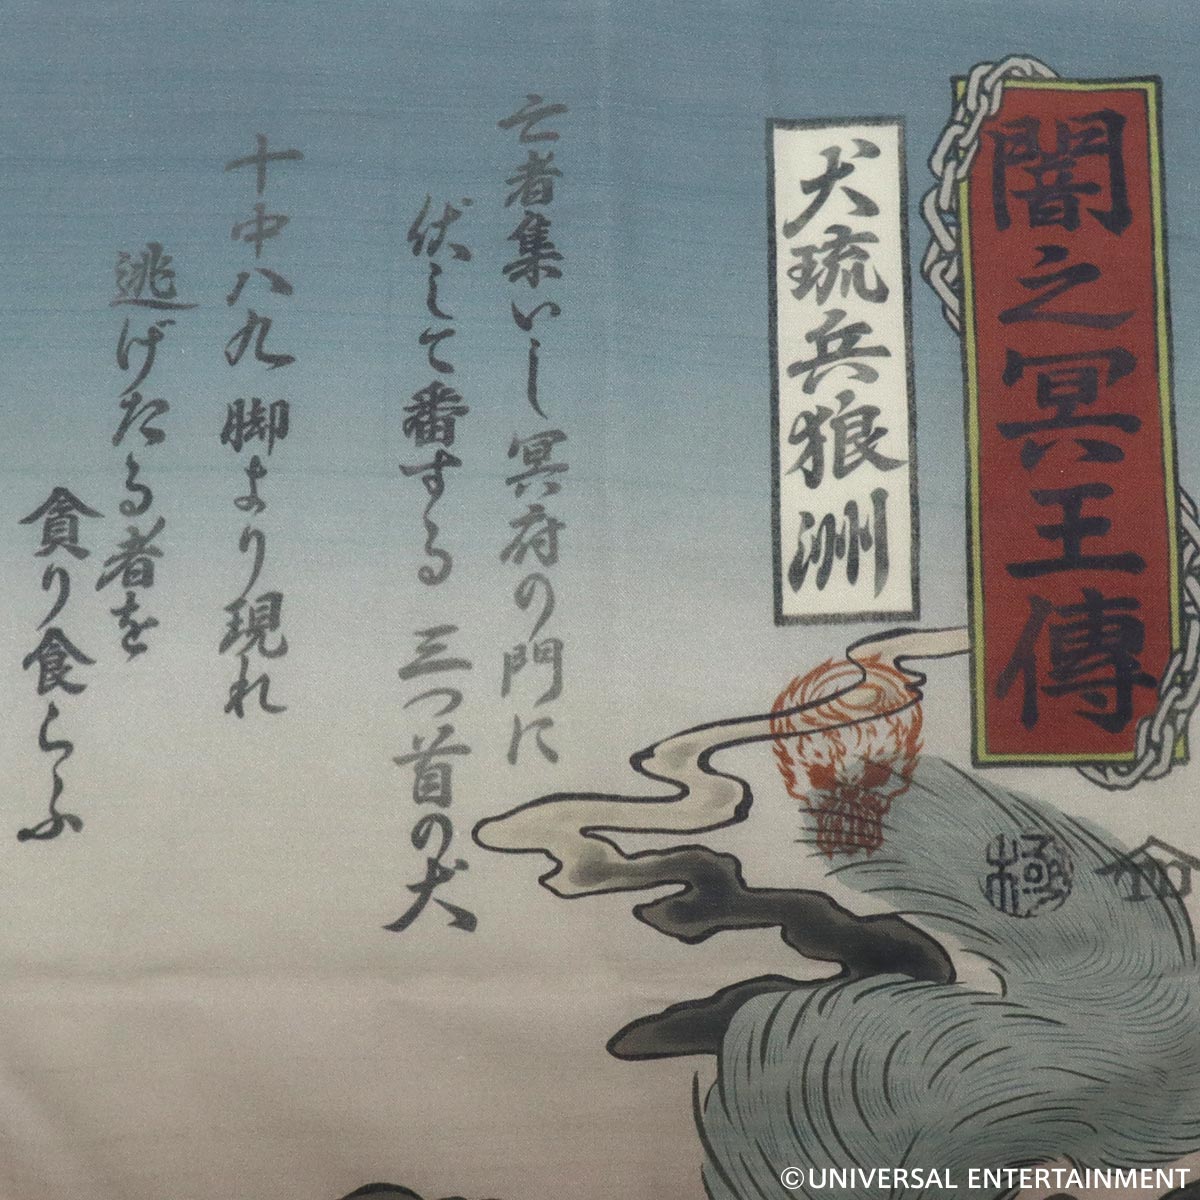 闇之冥王傳
犬琉兵狼洲
亡者集いし冥府の門に
伏して番する三つ首の犬
十中八九脚より現れ
逃げたる者を
貪り食らふ
極
©UNIVERSAL ENTERTAINMENT